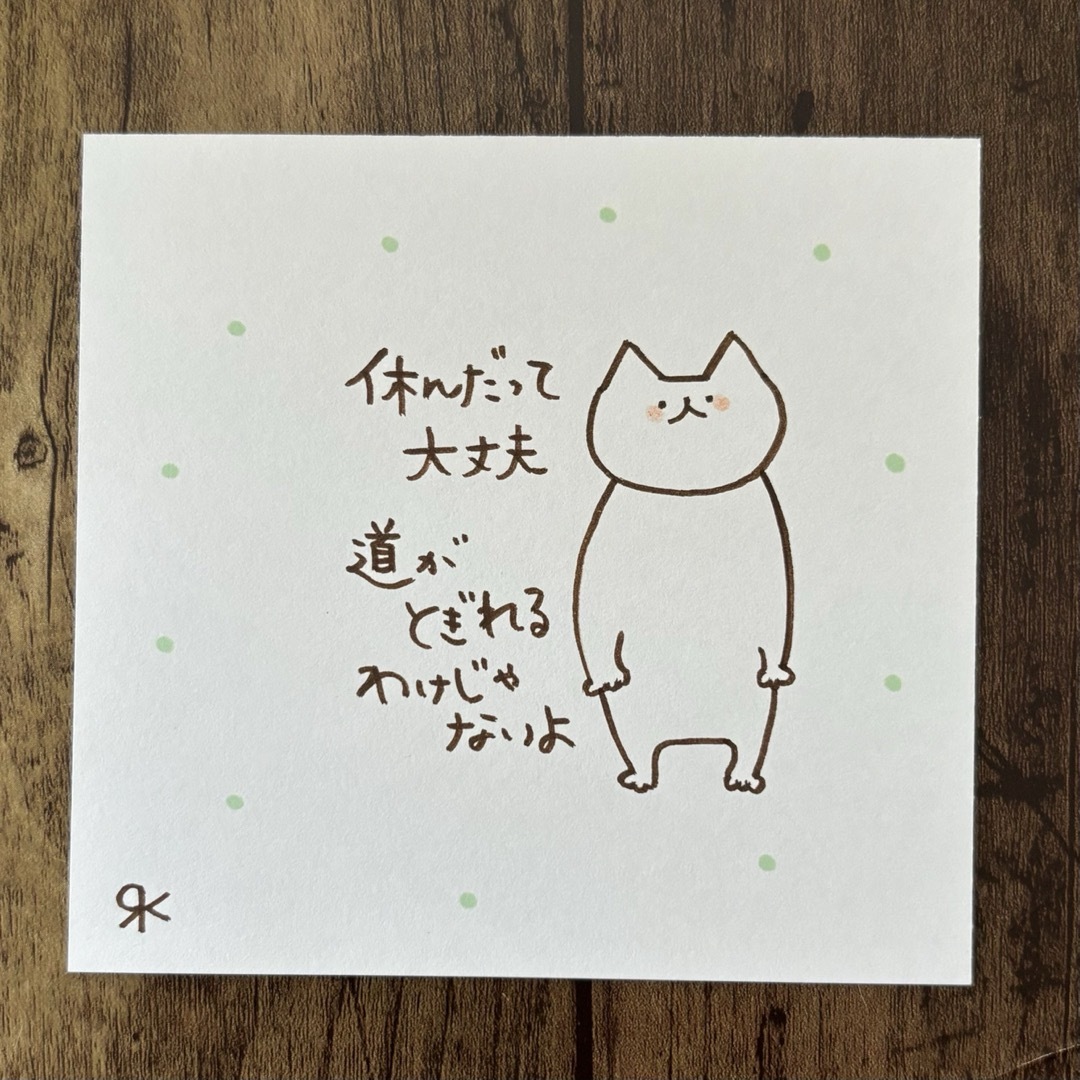 休んだって
大丈夫
道が
とぎれる
わけじゃ
ないよ